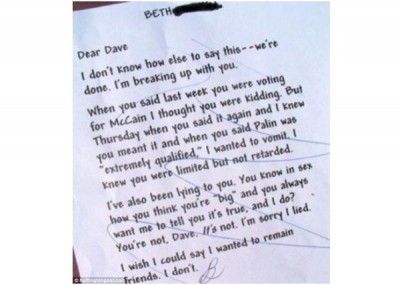 BETH
Dear Dave
I don't know how else to say this--we're
done. I'm breaking up with you.
When you said last week you were voting
for McCain I thought you were kidding. But
Thursday when you said it again and I knew
you meant it and when you said Palin was
"extremely qualified," I wanted to vomit. I
knew you were limited but not retarded.
I've also been lying to you. You know in sex
how you think you're "big" and you always
want me to tell you it's true, and I do?
You're not, Dave. It's not. I'm sorry I lied.
I wish I could say I wanted to remain
friends. I don't.